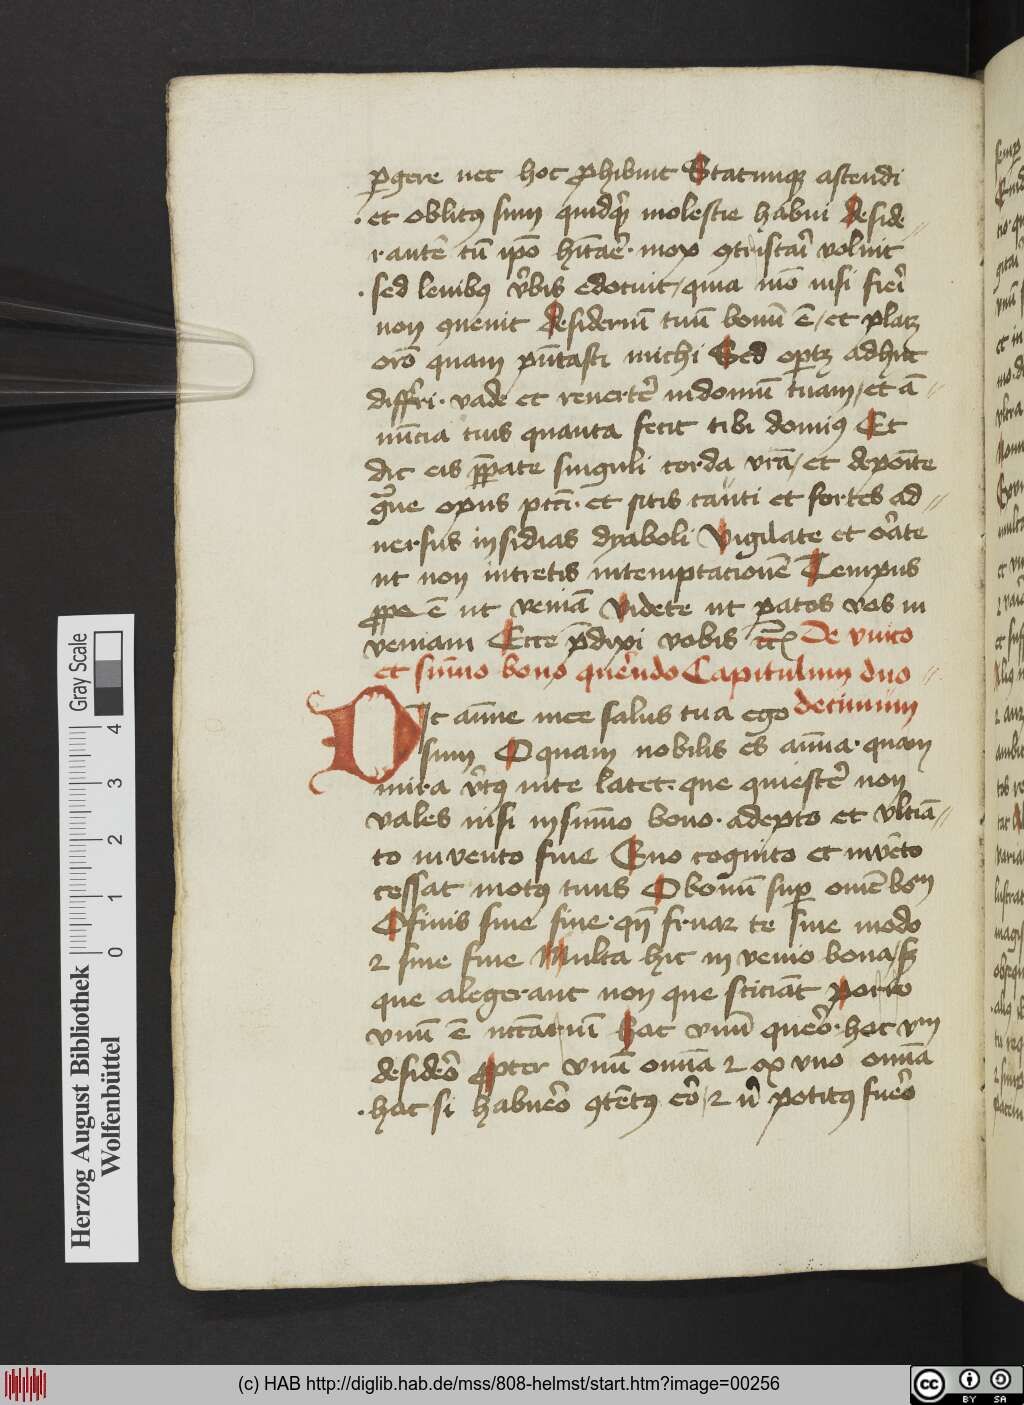 pergere nec hoc prohibuit Statimque ascendi
et oblitus sum quidquid molestie habui Deside
rantem tum ipsum hītaē mox contristari voluit
sed lenibus verbis edocuit quia modo nisi fieri
non quenit desiderium tuum bonum ē et placet
oratio quam pn̄tasti michi Sed oportet adhuc
differri vade et revertere indomum tuam et an
nuncia tuis quanta fecit tibi dominus Et
dic eis preparate singuli corda vr̄a et deponite
grave opus pctī et sitis cauti et fortes ad
uersus insidias dyaboli Vigilate et orate
ut non intretis intemptacionem Tempus
prope ē ut veniam Videte ut paratos vos in
veniam Ecce predixi vobis etc De unico
et sum̄o bono querendo Capitulum duo
decimum
Dic anime mee salus tua ego
sum O quam nobilis es anima quam
mira virtus inte latet que quiescere non
vales nisi insum̄o bono adepto et ultima
to invento fine Quo cognito et invento
cessat motus tuus O bonum super omne bonum
O finis sine fine quando fruar te sine modo
et sine fine Multa hic invenio bona sed
que alegerant non que sticiāt Porro
unum ē necessarium hoc unum quero hoc unum
desidero propter unum omnia et ex uno omnia
hac si habuero contentus ero et nisi potitus fuero
Herzog August Bibliothek
Wolfenbüttel
Gray Scale
0 1 2 3 4
(c) HAB http://diglib.hab.de/mss/808-helmst/start.htm?image=00256
cc BY SA